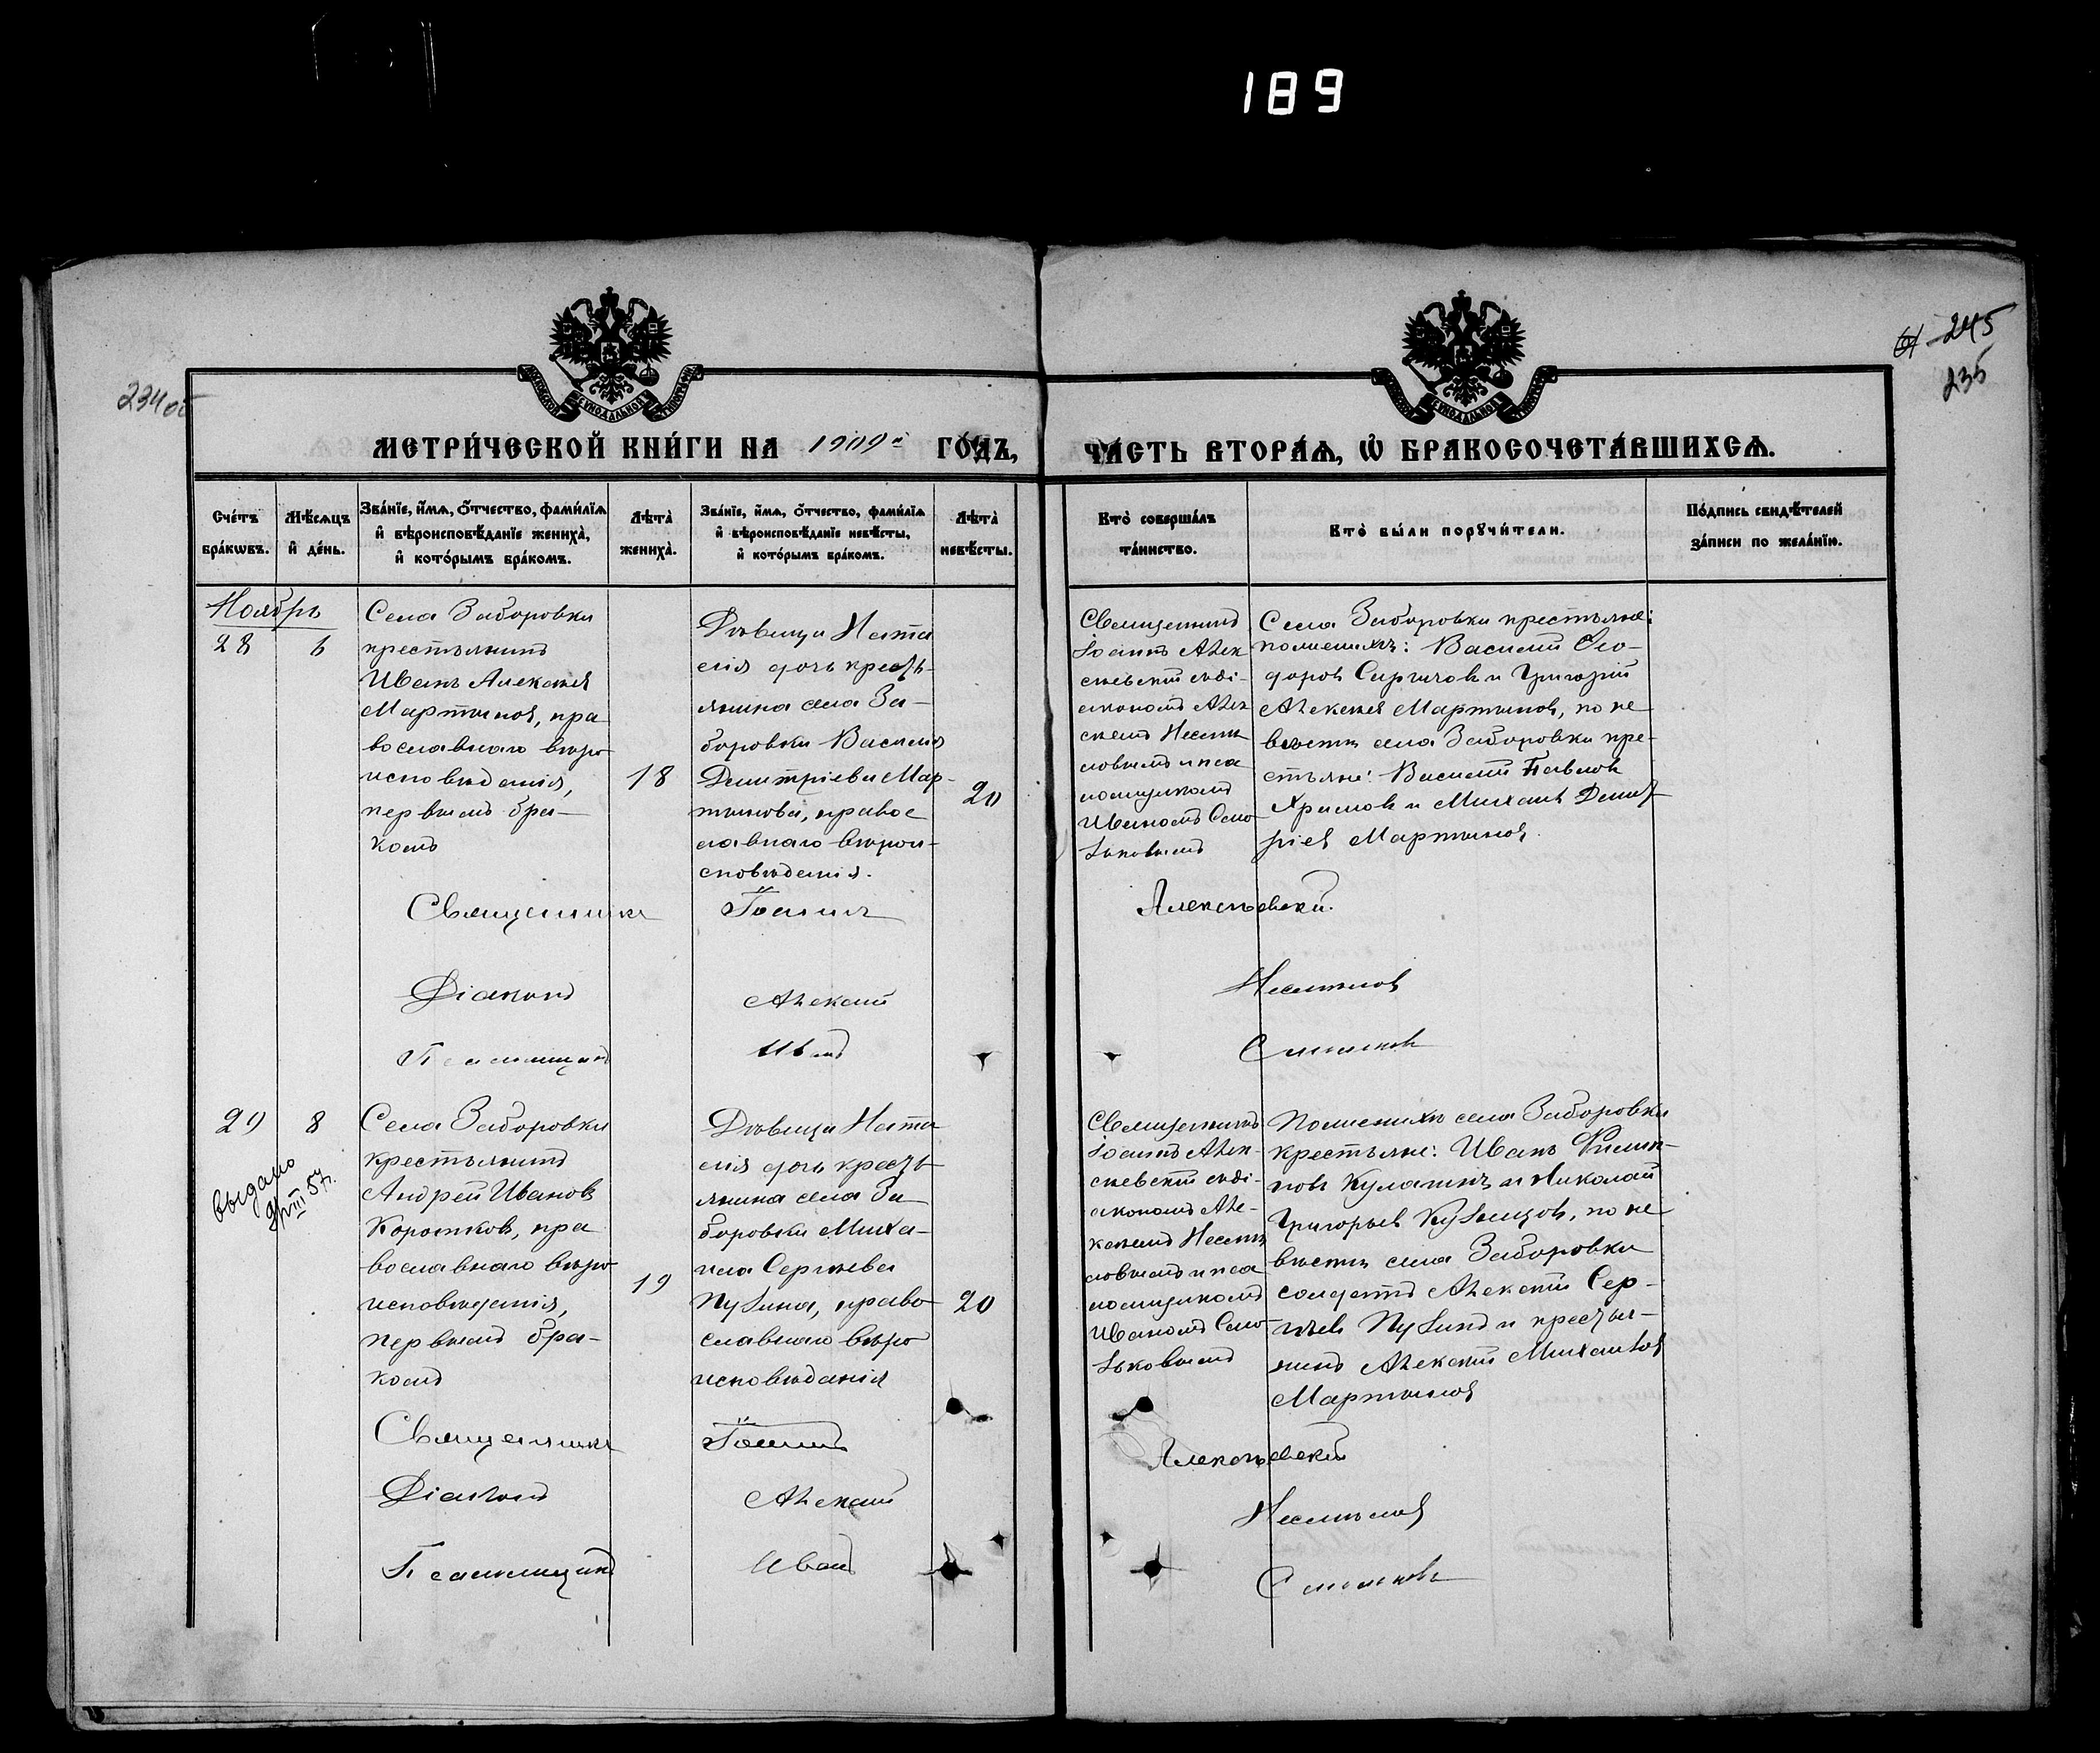 189
234 об
245
235
МЕТРИ́ЧЕСКОЙ КНИ́ГИ НА 1909й ГО́ДЪ,
ЧА́СТЬ ВТОРА́Ѧ, Ѽ БРАКОСОЧЕТА́ВШИХСѦ.
Сче́тъ бра́кѡвъ.
Мѣ́сѧцъ и҆ де́нь.
Зва́нїе, и҆́мѧ, ѻ҆́тчество, фами́лїѧ и҆ вѣроисповѣ́данїе жениха̀, и҆ кото́рымъ бра́комъ.
Лѣта̀ жениха̀.
Зва́нїе, и҆́мѧ, ѻ҆́тчество, фами́лїѧ и҆ вѣроисповѣ́данїе невѣ́сты, и҆ кото́рымъ бра́комъ.
Лѣта̀ невѣ́сты.
Кто̀ соверша́лъ та́инство.
Кто̀ бы́ли порꙋчи́тели.
По́дпись свидѣ́телей за́писи по жела́нїю.
Ноябрь
28
6
Села Заборовки
крестьянинъ
Иванъ Алексѣев
Мартынов, пра
вославнаго вѣро
исповѣданія,
первымъ бра-
комъ
18
Дѣвица Ната
лія дочь кресть-
янина села За-
боровки Василія
Димитріева Мар-
тынова, правос
лавнаго вѣрои-
сповѣданія.
20
Священникъ
Іоаннъ Алек
сѣевскій съ ді-
акономъ Алек
сѣемъ Несмѣ
ловымъ и пса
ломщикомъ
Иваномъ Смо
ляковымъ
Села Заборовки крестьяне:
по женихѣ: Василій Ѳео-
доров Сиричов и Григорій
Алексѣев Мартынов, по не
вѣстѣ села Заборовки кре-
стьяне: Василій Павлов
Храмов и Михаил Димит
ріев Мартынов.
Священникъ Іоаннъ Алексѣевскій.
Діаконъ Алексѣй Несмѣлов
Псаломщикъ Иванъ
29
8
выдано
9/VIII 57г.
Села Заборовки
крестьянинъ
Андрей Иванов
Коротков, пра
вославнаго вѣро
исповѣданія,
первымъ бра-
комъ
19
Дѣвица Ната
лія дочь кресть
янина села За
боровки Миха-
ила Сергѣева
Пузина, право
славнаго вѣро
исповѣданія
20
Священникъ
Іоаннъ Алек-
сѣевскій съ ді-
акономъ Але-
ксѣемъ Несмѣ
ловымъ и пса
ломщикомъ
Иваномъ Смо-
ляковымъ
По женихѣ села Заборовки
крестьяне: Иванъ Филип-
повъ Кулагинъ и Николай
Григорьев Кузнецов, по не
вѣстѣ села Заборовки
солдатъ Алексѣй Сер-
гѣев Пузинъ и крестья-
нинъ Алексѣй Михайлов
Мартынов
Священникъ Іоаннъ Алексѣевскій
Діаконъ Алексѣй Несмѣлов
Псаломщикъ Иванъ